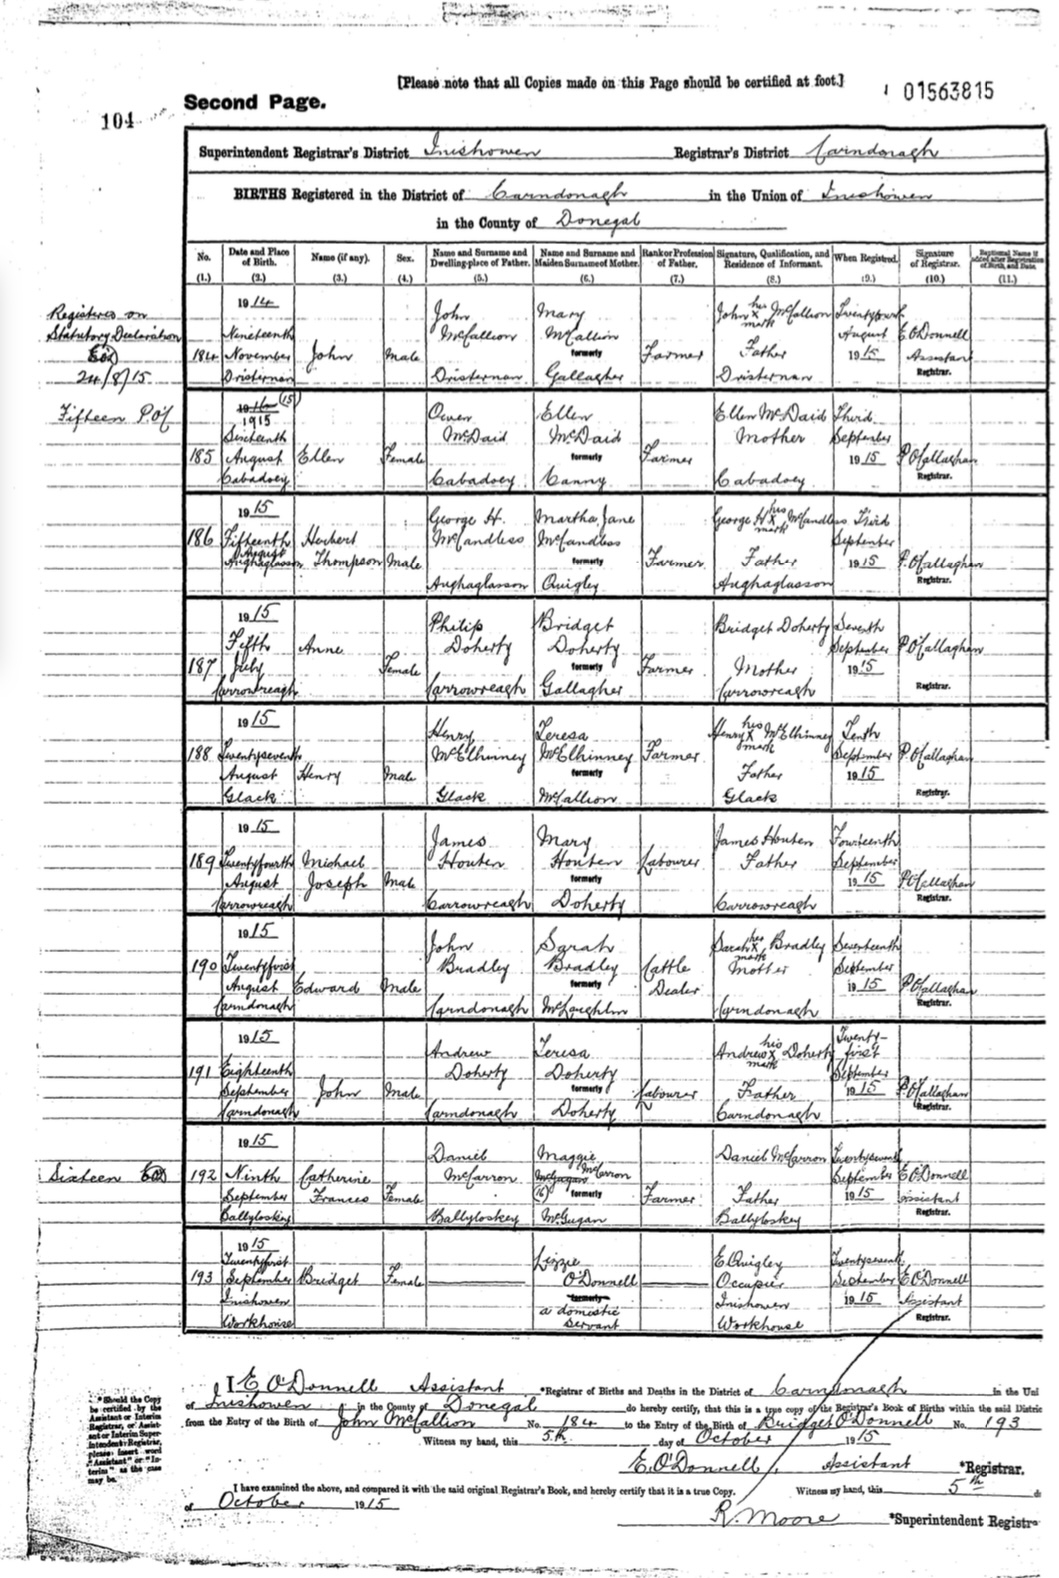 [Please note that all Copies made on this Page should be certified at foot.]
01563815
Second Page.
104
Superintendent Registrar's District Inishowen Registrar's District Carndonagh
BIRTHS Registered in the District of Carndonagh in the Union of Inishowen
in the County of Donegal
No. Date and Place of Birth. Name (if any). Sex. Name and Surname and Dwelling-place of Father. Name and Surname and Maiden Surname of Mother. Rank or Profession of Father. Signature, Qualification, and Residence of Informant. When Registered. Signature of Registrar. Baptismal Name if added after Registration of Birth, and Date.
(1.) (2.) (3.) (4.) (5.) (6.) (7.) (8.) (9.) (10.) (11.)
Registered on
Statutory Declaration
24/8/15
1914 John Mary John his x mark McCallion Twentyfourth
Nineteenth McCallion McCallion August E O'Donnell
184 November John Male formerly Farmer Father 1915 Assistant
Dristernan Dristernan Gallagher Dristernan Registrar.
Fifteen P O'C
1914 (15)
1915 Owen Ellen Ellen McDaid Third
Sixteenth McDaid McDaid Mother September
185 August Ellen Female formerly Farmer 1915 P O'Callaghan
Cabadoey Cabadoey Canny Cabadoey Registrar.
1915 George H. Martha Jane George H his x mark McCandless Third
186 Fifteenth Herbert McCandless McCandless September
August Aughaglasson Thompson Male formerly Farmer Father 1915 P. O'Callaghan
Aughaglasson Quigley Aughaglasson Registrar.
1915 Philip Bridget Bridget Doherty Seventh
Fifth Anne Doherty Doherty September P O'Callaghan
187 July Female formerly Farmer Mother 1915
Carrowreagh Carrowreagh Gallagher Carrowreagh Registrar.
1915 Henry Teresa Henry his x mark McElhinney Tenth
188 Twentyseventh McElhinney McElhinney Farmer September P. O'Callaghan
August Henry Male formerly Father 1915
Glack Glack McCallion Glack Registrar.
1915 James Mary James Houten Fourteenth
189 Twentyfourth Michael Houten Houten Labourer Father September
August Joseph Male formerly 1915 P O'Callaghan
Carrowreagh Carrowreagh Doherty Carrowreagh Registrar.
1915 John Sarah Sarah her x mark Bradley Seventeenth
190 Twentyfirst Bradley Bradley Cattle Mother September
August Edward Male formerly Dealer 1915 P O'Callaghan
Carndonagh Carndonagh McLaughlin Carndonagh Registrar.
1915 Andrew Teresa Andrew his x mark Doherty Twenty-first
191 Eighteenth Doherty Doherty September
September John Male formerly Labourer Father 1915 P. O'Callaghan
Carndonagh Carndonagh Doherty Carndonagh Registrar.
Sixteen
1915 Daniel Maggie Daniel McCarron Twentyseventh
192 Ninth Catherine McCarron McGugan McCarron September E O'Donnell
September Frances Female (16) formerly Farmer Father 1915 Assistant
Ballyloskey Ballyloskey McGugan Ballyloskey Registrar.
1915
Twentyfirst Lizzie E Quigley Twentyseventh
193 September Bridget Female O'Donnell Occupier September E O'Donnell
Inishowen formerly Inishowen 1915 Assistant
Workhouse a domestic servant Workhouse Registrar.
*Should the Copy
be certified by the
Assistant or Interim
Registrar, or Assist-
ant or Interim Super-
intendent Registrar,
please insert word
"Assistant" or "In-
terim" as the case
may be.
I E. O'Donnell Assistant *Registrar of Births and Deaths in the District of Carndonagh in the Uni
of Inishowen in the County of Donegal do hereby certify, that this is a true copy of the Registrar's Book of Births within the said Distric
from the Entry of the Birth of John McCallion No. 184 to the Entry of the Birth of Bridget O'Donnell No. 193
Witness my hand, this 5th day of October 1915
E. O'Donnell, Assistant *Registrar.
I have examined the above, and compared it with the said original Registrar's Book, and hereby certify that it is a true Copy. Witness my hand, this 5th d
of October 1915
R. Moore *Superintendent Registr